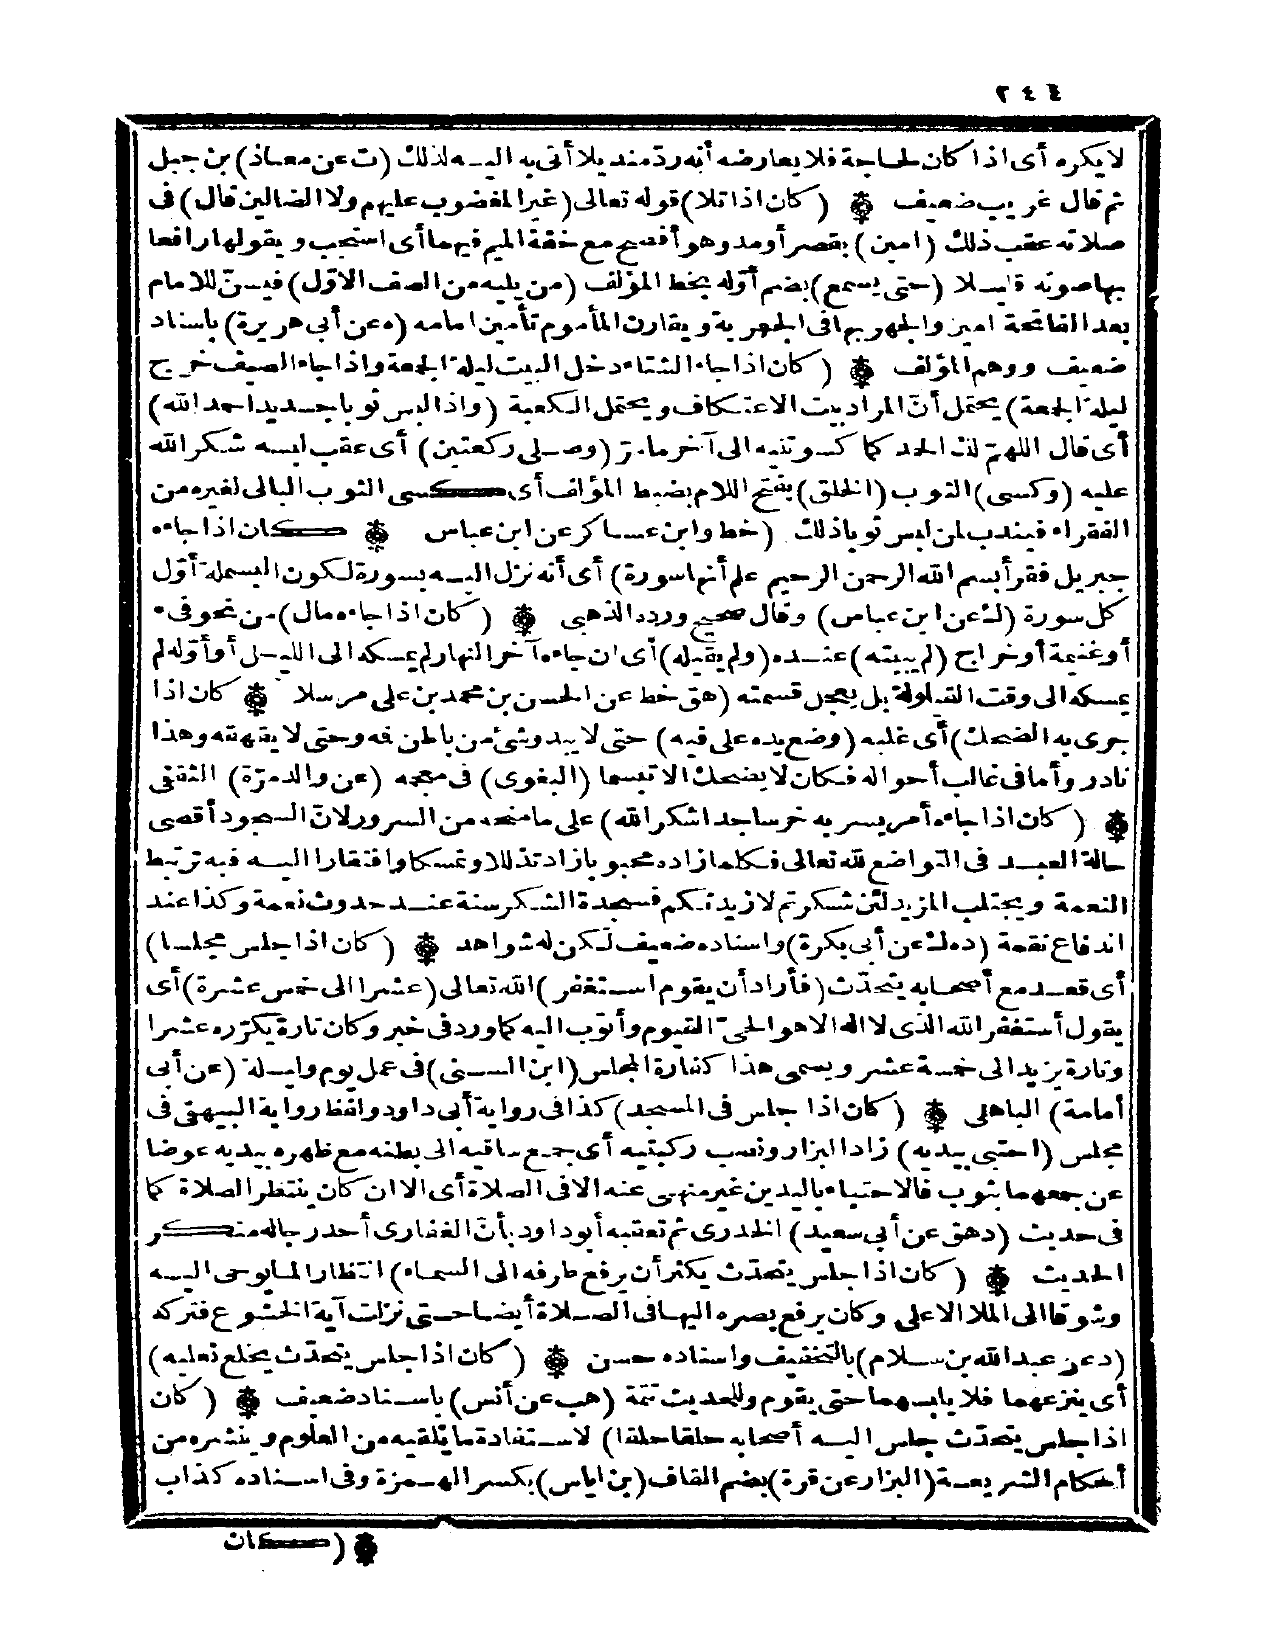 ٢٤٤
لا يكره أى اذا كان لحاجة فلا يعارضه أنه رد منديلا أتى به اليه لذلك (ت عن معاذ) بن جبل
ثم قال غريب ضعيف ۞ (كان اذا تلا) قوله تعالى (غير المغضوب عليهم ولا الضالين قال) فى
صلاته عقب ذلك (امين) بقصر أو مد وهو أفصح مع خفة الميم فيهما أى استجب ويقولها رافعا
بها صوته قليلا (حتى يسمع) بضم أوله بخط المؤلف (من يليه من الصف الاوّل) فيسنّ للامام
بعد الفاتحة امين والجهر بها فى الجهرية ويقارن المأموم تأمين امامه (ه عن أبى هريرة) باسناد
ضعيف ووهم المؤلف ۞ (كان اذا جاء الشتاء دخل البيت ليلة الجمعة واذا جاء الصيف خرج
ليلة الجمعة) يحتمل أنّ المراد بيت الاعتكاف ويحتمل الكعبة (واذا لبس ثوبا جديدا حمد الله)
أى قال اللهمّ لك الحمد كما كسوتنيه الى آخر ما مرّ (وصلى ركعتين) أى عقب لبسه شكر الله
عليه (وكسى) الثوب (الخلق) بفتح اللام بضبط المؤلف أى كسى الثوب البالى لغيره من
الفقراء فيندب لمن لبس ثوبا ذلك (خط وابن عساكر عن ابن عباس ۞ كان اذا جاءه
جبريل فقرأ بسم الله الرحمن الرحيم علم أنها سورة) أى أنه نزل اليه بسورة لكون البسملة أوّل
كل سورة (ك عن ابن عباس) وقال صحيح ورده الذهبى ۞ (كان اذا جاءه مال) من نحو فىء
أو غنيمة أو خراج (لم يبيته) عنده (ولم يقيله) أى ان جاءه آخر النهار لم يمسكه الى الليل أو أوّله لم
يمسكه الى وقت القيلولة بل يعجل قسمته (هق خط عن الحسن بن محمد بن على مرسلا ۞ كان اذا
جرى به الضحك) أى غلبه (وضع يده على فيه) حتى لا يبدو شئ من باطن فمه وحتى لا يقهقه وهذا
نادر وأما فى غالب أحواله فكان لا يضحك الا تبسما (البغوى) فى معجمه (عن والد مرّة) الثقفى
۞ (كان اذا جاءه أمر يسر به خر ساجدا شكر الله) على ما منحه من السرور لانّ السجود أقصى
حالة العبد فى التواضع لله تعالى فكلما زاده محبوبا زاد تذللا وتمسكا وافتقارا اليه فيه ترتبط
النعمة ويجتلب المزيد لئن شكرتم لازيدنكم فسجدة الشكر سنة عند حدوث نعمة وكذا عند
اندفاع نقمة (د ه ك عن أبى بكرة) واسناده ضعيف لكن له شواهد ۞ (كان اذا جلس مجلسا)
أى قعد مع أصحابه يتحدّث (فأراد أن يقوم استغفر) الله تعالى (عشرا الى خمس عشرة) أى
يقول أستغفر الله الذى لا اله الا هو الحىّ القيوم وأتوب اليه كما ورد فى خبر وكان تارة يكرّره عشرا
وتارة يزيد الى خمسة عشر ويسمى هذا كفارة المجلس (ابن السنى) فى عمل يوم وليلة (عن أبى
أمامة) الباهلى ۞ (كان اذا جلس فى المسجد) كذا فى رواية أبى داود ولفظ رواية البيهقى فى
مجلس (احتبى بيديه) زاد البزار ونصب ركبتيه أى جمع ساقيه الى بطنه مع ظهره بيديه عوضا
عن جمعهما بثوب فالاحتباء باليدين غير منهى عنه الا فى الصلاة أى الا ان كان ينتظر الصلاة كما
فى حديث (د هق عن أبى سعيد) الخدرى ثم تعقبه أبو داود بأنّ الغفارى أحد رجاله منكر
الحديث ۞ (كان اذا جلس يتحدّث يكثر أن يرفع طرفه الى السماء) انتظارا لما يوحى اليه
وشوقا الى الملا الاعلى وكان يرفع بصره اليها فى الصلاة أيضا حتى نزلت آية الخشوع فتركه
(د عن عبد الله بن سلام) بالتخفيف واسناده حسن ۞ (كان اذا جلس يتحدّث يخلع نعليه)
أى ينزعهما فلا يلبسهما حتى يقوم وللحديث تتمة (هب عن أنس) باسناد ضعيف ۞ (كان
اذا جلس يتحدّث جلس اليه أصحابه حلقا حلقا) لاستفادة ما يلقيه من العلوم وينشره من
أحكام الشريعة (البزار عن قرة) بضم القاف (بن اياس) بكسر الهمزة وفى اسناده كذاب
۞ (كان